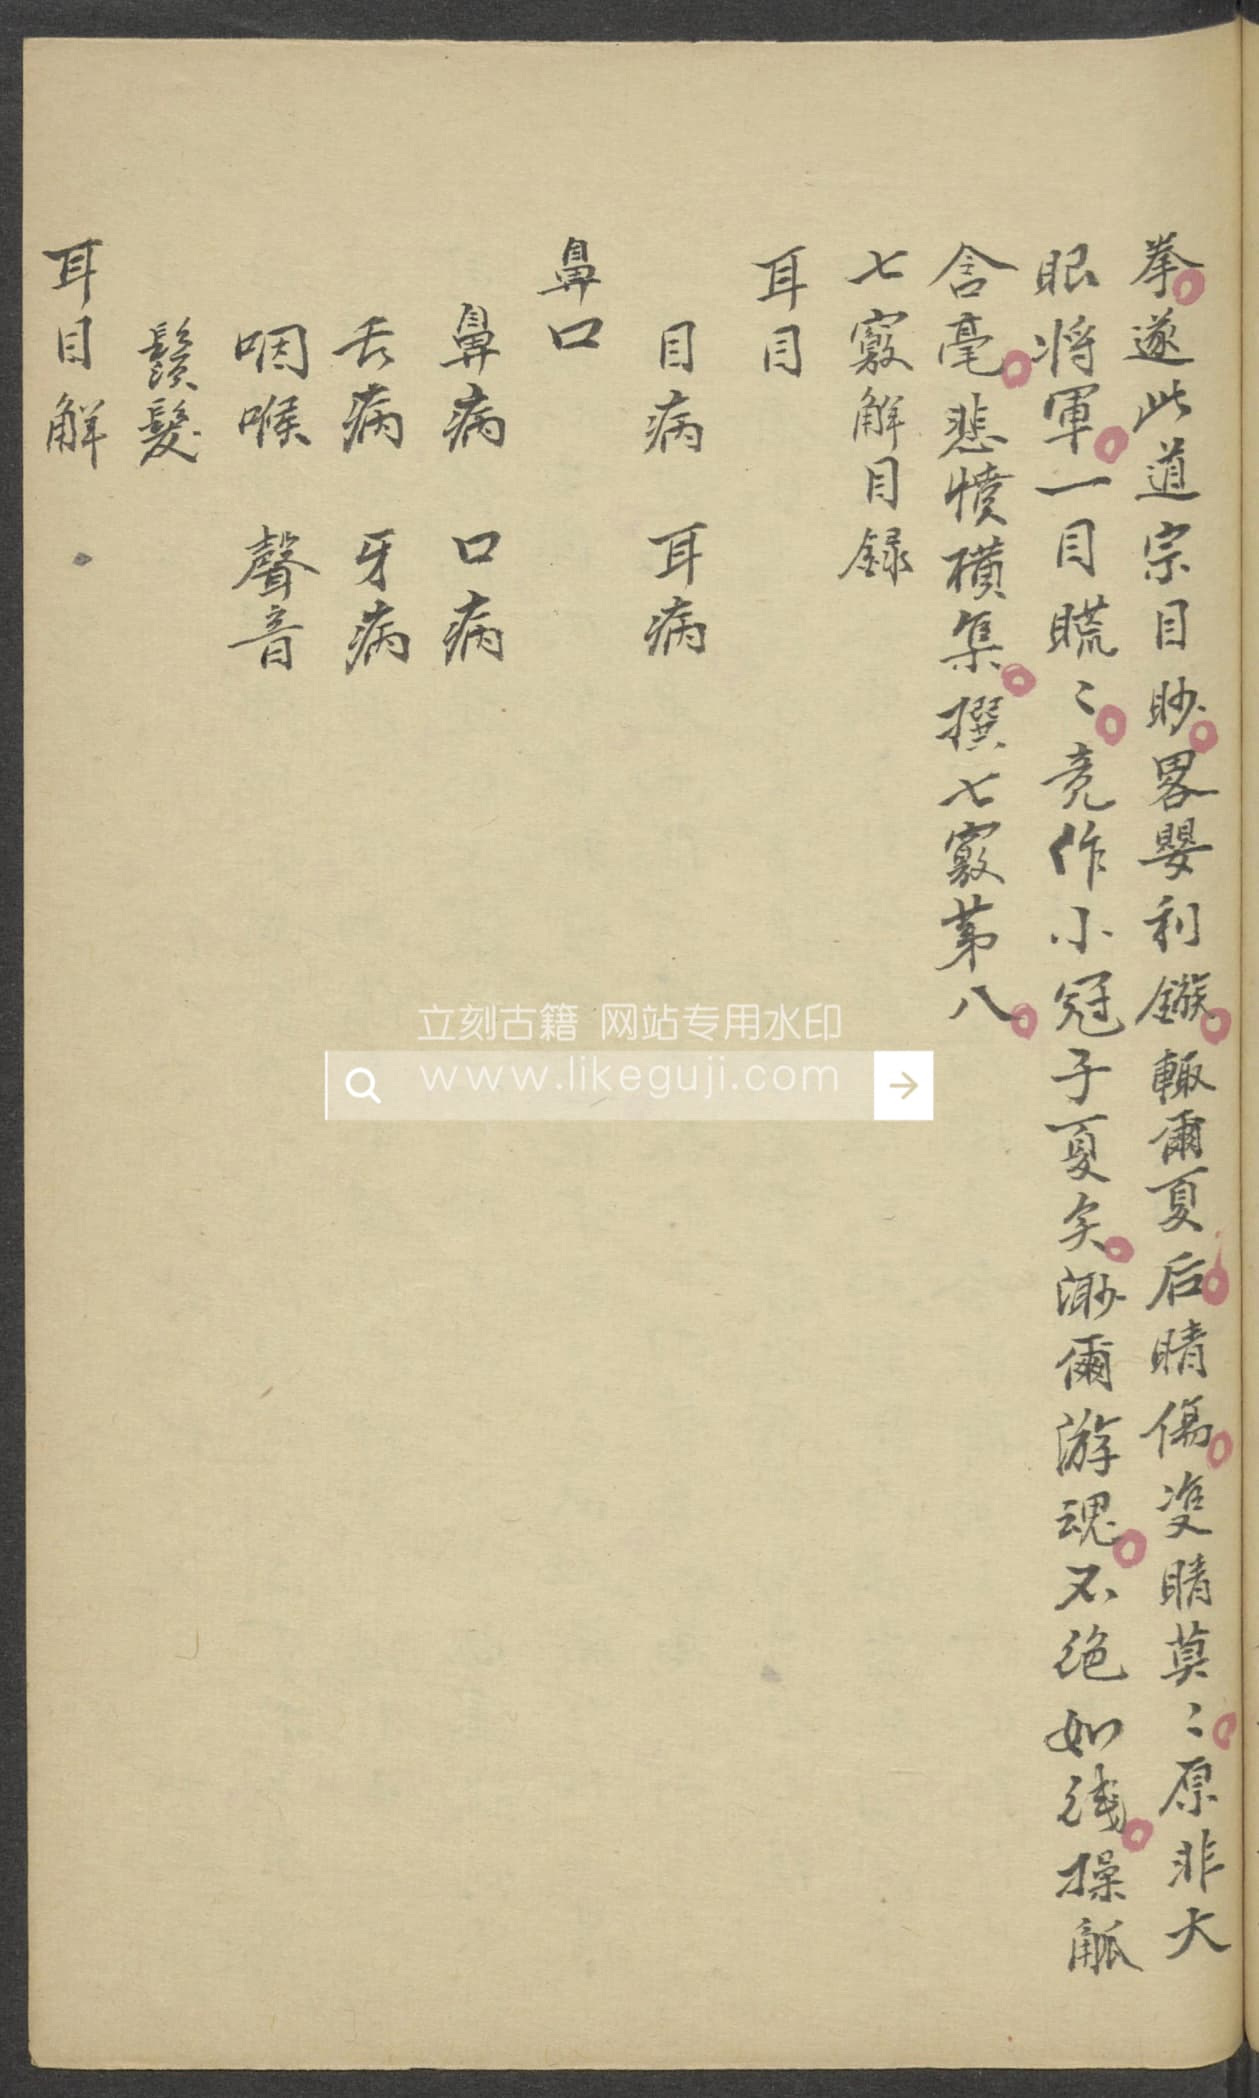 拳遂此道宗目眇畧嬰利鏃輙爾夏后睛傷雙睛莫〻原非大
眼將軍一目䀮〻竟作小冠子夏矣渺爾游魂不絕如綫操觚
含毫悲憤橫集撰七竅第八
七竅解目録
耳目
目病 耳病
鼻口
鼻病 口病
舌病 牙病
咽喉 聲音
鬚髮
耳目解
立刻古籍 网站专用水印
www.likeguji.com